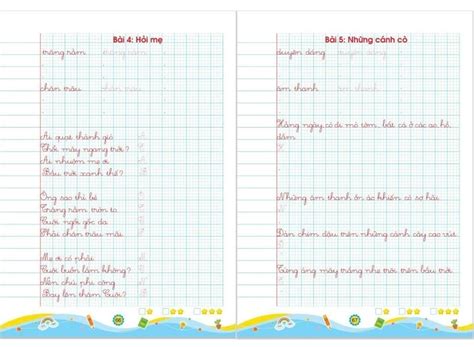 Bài 4: Hỏi mẹ
trăng rằm trăng rằm
chăn trâu chăn trâu
Ai quạt thành gió A
Thổi mây ngang trời? T
Ai nhuộm mẹ ơi A
Bầu trời xanh thế? B
Ông sao thì bé Ô
Trăng rằm tròn to T
Cuội ngồi gốc đa C
Phải chăn trâu mãi P
Mẹ ơi có phải M
Cuội buồn lắm không? C
Nên chú phi công N
Bay lên thăm Cuội? B
66
Bài 5: Những cánh cò
duyên dáng duyên dáng
âm thanh âm thanh
Hàng ngày cò đi mò tôm, bắt cá ở các ao, hồ,
đầm.
H
Những âm thanh ồn ào khiến cò sợ hãi.
Đàn chim đậu trên những cánh cây cao vút.
Từng áng mây trắng nhẹ trôi trên bầu trời.
67